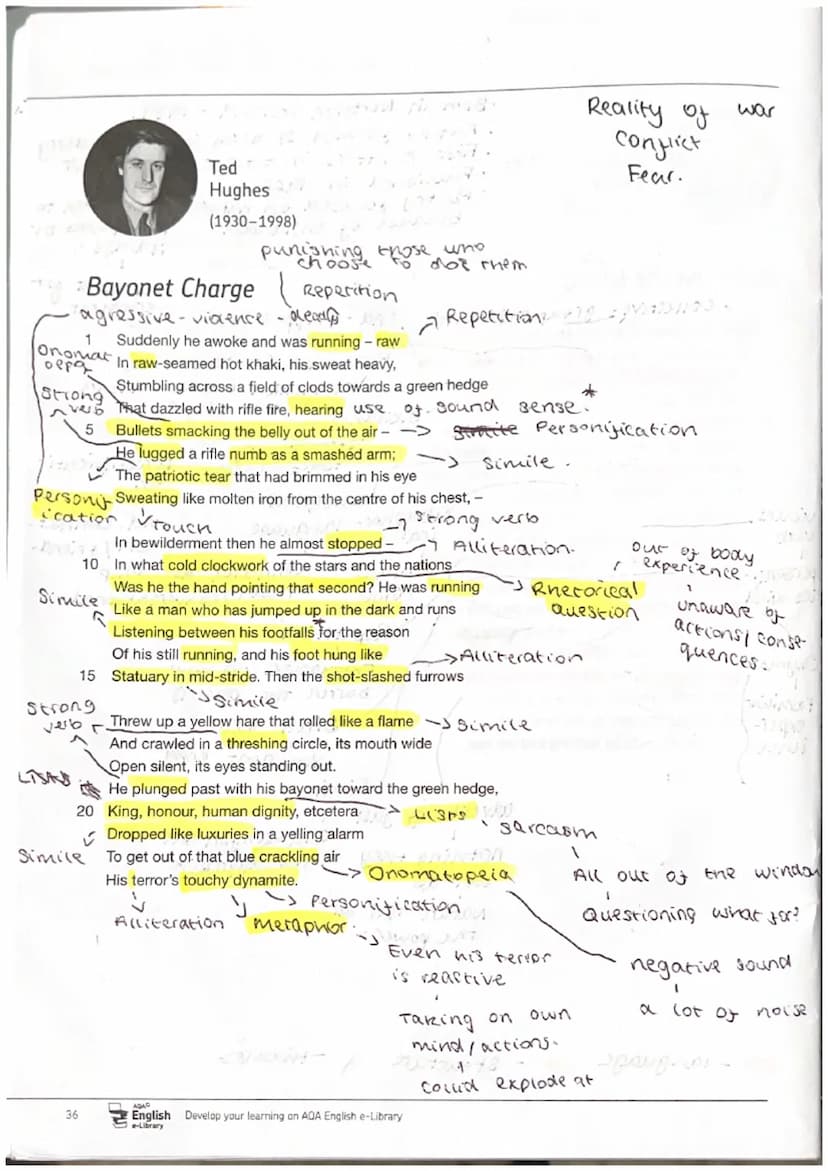 Reality of war
Conflict
Fear.
Ted
Hughes
(1930–1998)
punishing those who
choose to do them
Bayonet Charge
Repetition
agressive - violence -
Repetition
1 Suddenly he awoke and was running – raw
Onomat
oepa
In raw-seamed hot khaki, his sweat heavy,
Stumbling across a field of clods towards a green hedge
Strong
verb
That dazzled with rifle fire, hearing use of sound sense. *
5 Bullets smacking the belly out of the air – –> Personification
He lugged a rifle numb as a smashed arm; –> Simile.
The patriotic tear that had brimmed in his eye
Personif
ication
Sweating like molten iron from the centre of his chest, –
Touch
Strong verb
In bewilderment then he almost stopped –
Alliteration.
10 In what cold clockwork of the stars and the nations
out of body
experience.
Was he the hand pointing that second? He was running
Rhetorical
question
Simile
Like a man who has jumped up in the dark and runs
unaware of
actions/conse-
quences.
Listening between his footfalls * for the reason
Of his still running, and his foot hung like
Alliteration
15 Statuary in mid-stride. Then the shot-slashed furrows
Simile
Strong
verb
Threw up a yellow hare that rolled like a flame
Simile
And crawled in a threshing circle, its mouth wide
Open silent, its eyes standing out.
He plunged past with his bayonet toward the green hedge,
20 King, honour, human dignity, etcetera
Lists
sarcasm
Dropped like luxuries in a yelling alarm
Simile
To get out of that blue crackling air
Onomatopeia
All out of the window
His terror's touchy dynamite.
Questioning what for?
Personification
Alliteration
Metaphor.
Even his terror
is reactive
negative sound
a lot of noise
Taking on own
mind/actions.
could explode at
36
AQA
English
e-Library
Develop your learning on AQA English e-Library